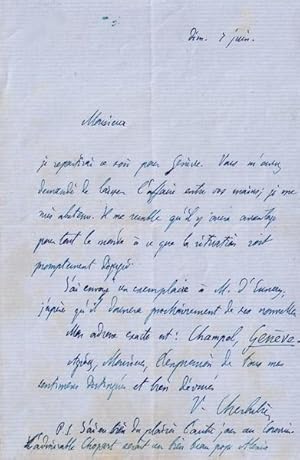 dim. 7 juin.
Monsieur
je repartirai ce soir pour Genève. Vous m'avez
demandé de laisser l'affaire entre vos mains; je me
suis abstenu. Il me semble qu'il y aurait avantage
pour tout le monde à ce que la situation soit
promptement
J'ai envoyé un exemplaire à M. d'
j'espère qu'il donnera prochainement de ses nouvelles
Mon adresse exacte est: Champel, Genève.
Agréez, Monsieur, l'expression de tous mes
sentiments distingués et bien dévoués
V. Cherbuliez
P.S. J'ai eu bien du plaisir l'autre jour au
L'admirable Chopart serait un bien beau pape